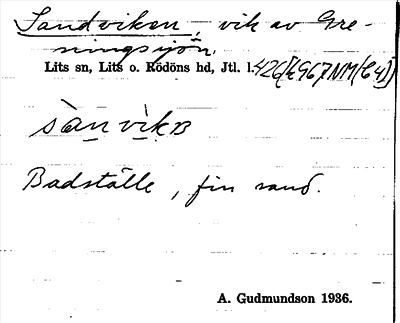 Sandviken, vik av Gre-
ningssjön,
Lits sn, Lits o. Rödöns hd, Jtl. l.
sànvìkʙ
Badställe, fin sand.
A. Gudmundson 1936.